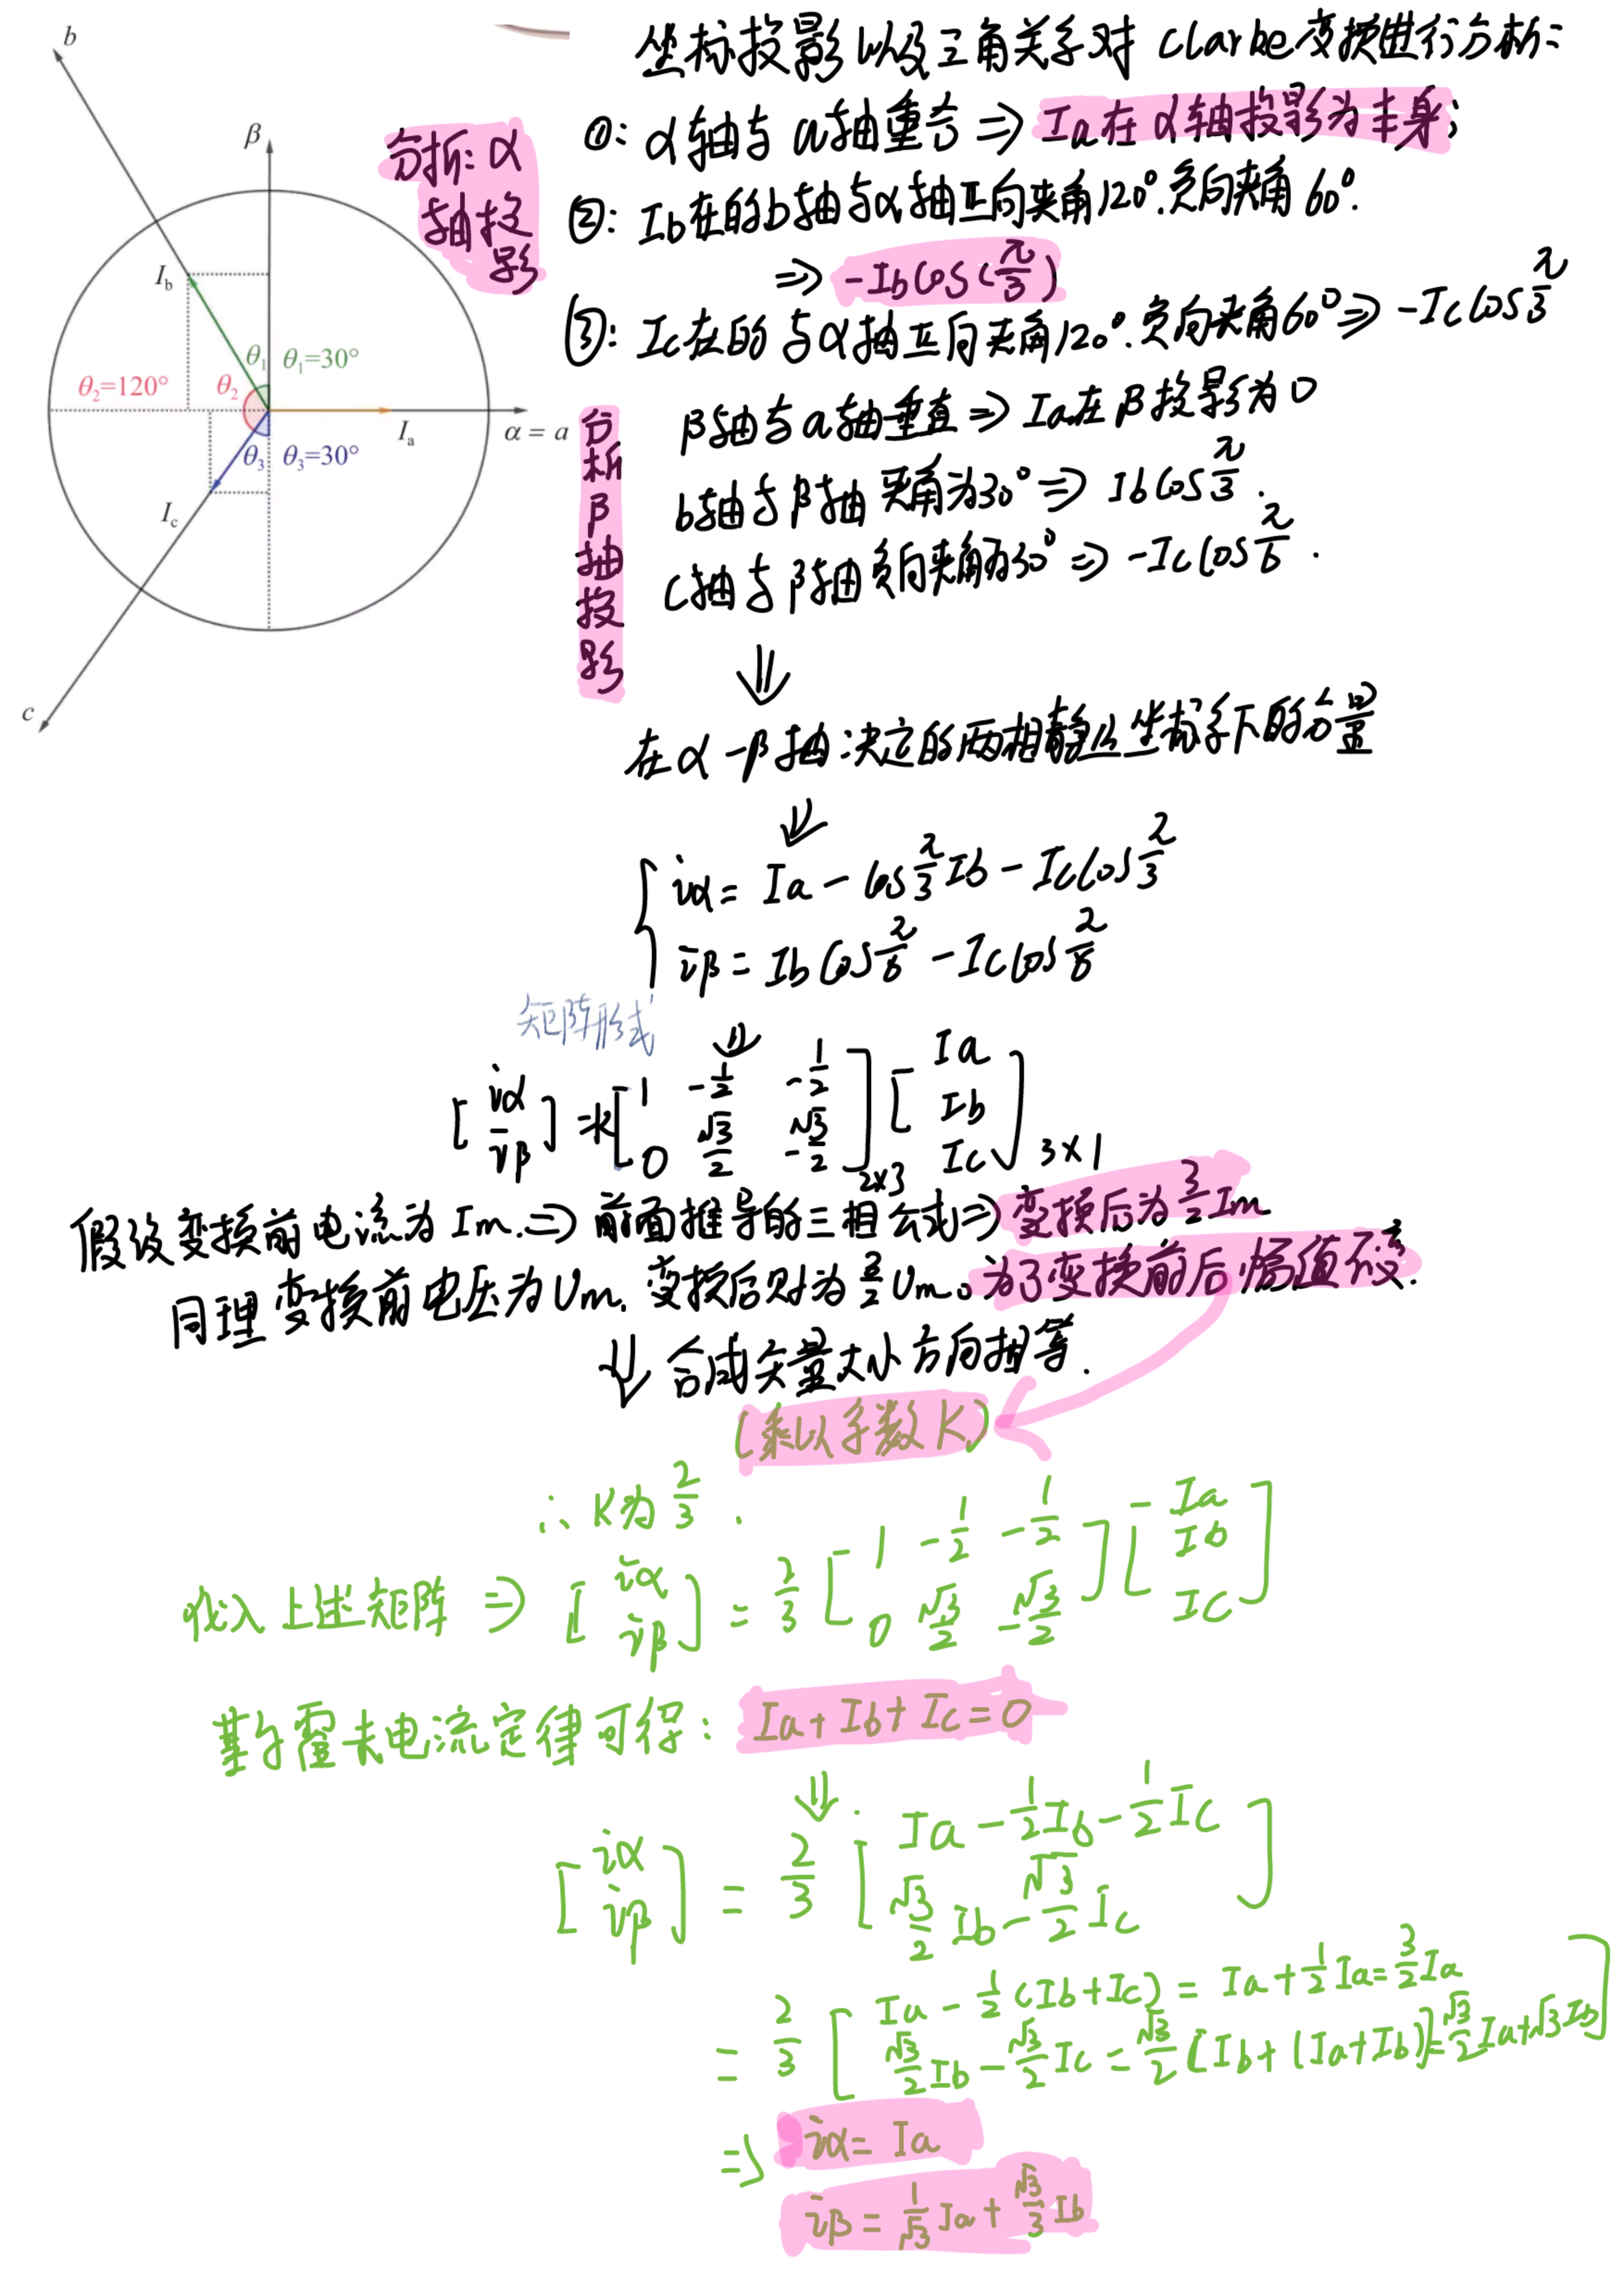 坐标投影以及三角关系对 clarke变换进行分析:
b
β
Ib
θ1 θ1=30°
θ2=120° θ2
Ia
α = a
θ3 θ3=30°
Ic
c
分析:α
轴投
影
①: α轴与a轴重合⇒Ia在α轴投影为本身;
②: Ib在的b轴与α轴正向夹角120°.负向夹角60°.
⇒ -Ibcos(π/3)
③: Ic在的与α轴正向夹角120°.负向夹角60°⇒ -Iccosπ/3
分析β轴投影
β轴与a轴垂直⇒Ia在β投影为0
b轴与β轴夹角为30°⇒ Ibcosπ/3.
c轴与β轴负向夹角为30°⇒ -Iccosπ/6.
⇓
在α-β轴决定的两相静止坐标系下的分量
⇓
iα= Ia - cosπ/3 Ib - Iccosπ/3
iβ= Ibcosπ/6 - Iccosπ/6
矩阵形式
⇓
[iα iβ] =k[1 -1/2 -1/2
0 √3/2 -√3/2]2×3 [Ia Ib Ic]3×1
假设变换前电流为Im.⇒前面推导的三相公式⇒变换后为3/2Im
同理变换前电压为Um.变换后则为3/2Um。为了变换前后幅值不变.
⇓ 合成矢量大小方向相等.
(乘以系数K)
∴ K为2/3.
代入上述矩阵⇒ [iα iβ] = 2/3 [1 -1/2 -1/2
0 √3/2 -√3/2] [Ia Ib Ic]
基尔霍夫电流定律可得: Ia+Ib+Ic=0
⇓
[iα iβ] = 2/3 [Ia-1/2Ib-1/2Ic
√3/2Ib-√3/2Ic]
= 2/3 [Ia-1/2(Ib+Ic)=Ia+1/2Ia=3/2Ia
√3/2Ib-√3/2Ic=√3/2[Ib+(Ia+Ib)]=√3/2Ia+√3Ib]
⇒ iα= Ia
iβ= 1/√3Ia+√3/3Ib